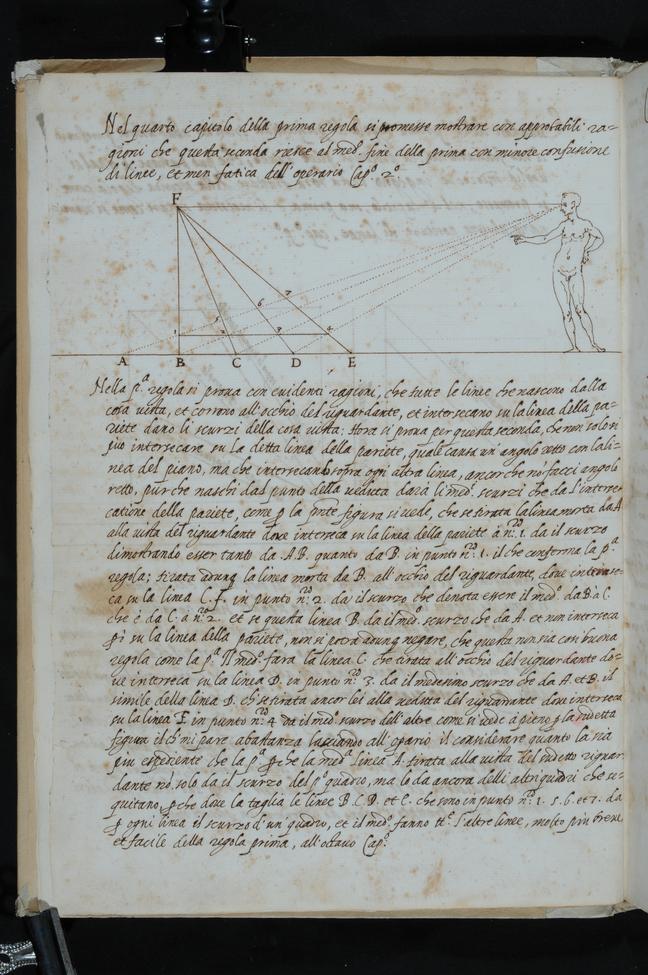 Nel quarto capitolo della prima regola si promesse mostrare con approbabili ra=
gioni che questa seconda riesce al med.º fine della prima con minore confusione
di linee, et men fatica dell'operario Cap.º 2.º
F
7
6
5
1 2 3 4
A B C D E
Nella p.ª regola si proua con euidenti ragioni, che tutte le linee che nascono dalla
cosa uista, et corrono all'occhio del riguardante, et intersecano su la linea della pa=
riete dano li scurzi della cosa uista; Hora si proua per questa seconda, che non solo si
puo intersecare su la detta linea della pariete, quale causa un angolo retto con la li=
nea del piano, ma che intersecando sopra ogni altra linea, ancor che nō facci angolo
retto, pur che naschi dal punto della ueduta dara li med.ⁱ scurzi che da l'interse=
catione della pariete, come p la pñte figura si uede, che se tirata la linea morta da A
alla uista del riguardante doue interseca su la linea della pariete à n.ro 1. da il scurzo
dimostrando esser tanto da .A.B. quanto da B. in punto n.ro 1. il che conferma la p.ª
regola; tirata adunq la linea morta da B. all'occhio del riguardante, doue interse=
ca su la linea C.F. in punto n.ro 2. da il scurzo che denota essere il med.º da B. à C.
che è da C. à n.ro 2. et se questa linea B. da il med.º scurzo che da A. et non interseca
p ò su la linea della pariete, non si potra adunq negare, che questa non sia cosi buona
regola come la p.ª Il med.º fara la linea C. che tirata all'occhio del riguardante do=
ue interseca su la linea D. in punto n.ro 3. da il medesimo scurzo che da A. et B. il
simile della linea D. che se tirata ancor lei alla ueduta del riguardante doue interseca
su la linea E in punto n.ro 4 da il med.º scurzo dell'altre come si uede à pieno p la sudetta
figura il ch mi pare abastanza lasciando all'opario il considerare quanto la sia
piu espediente che la p.ª pche la med.ª linea A. tirata alla uista del sudetto riguar
dante nō solo da il scurzo del p.º quadro, ma lo da ancora delli altri quadri che se=
quitano, pche doue la taglia le linee B.C.D. et E. che sono in punto n.ro 1. 5. 6. et 7. da
p ogni linea il scurzo d'un quadro, et il med.º fanno tt.e l'altre linee, molto piu breue
et facile della regola prima, all'octauo Cap.º